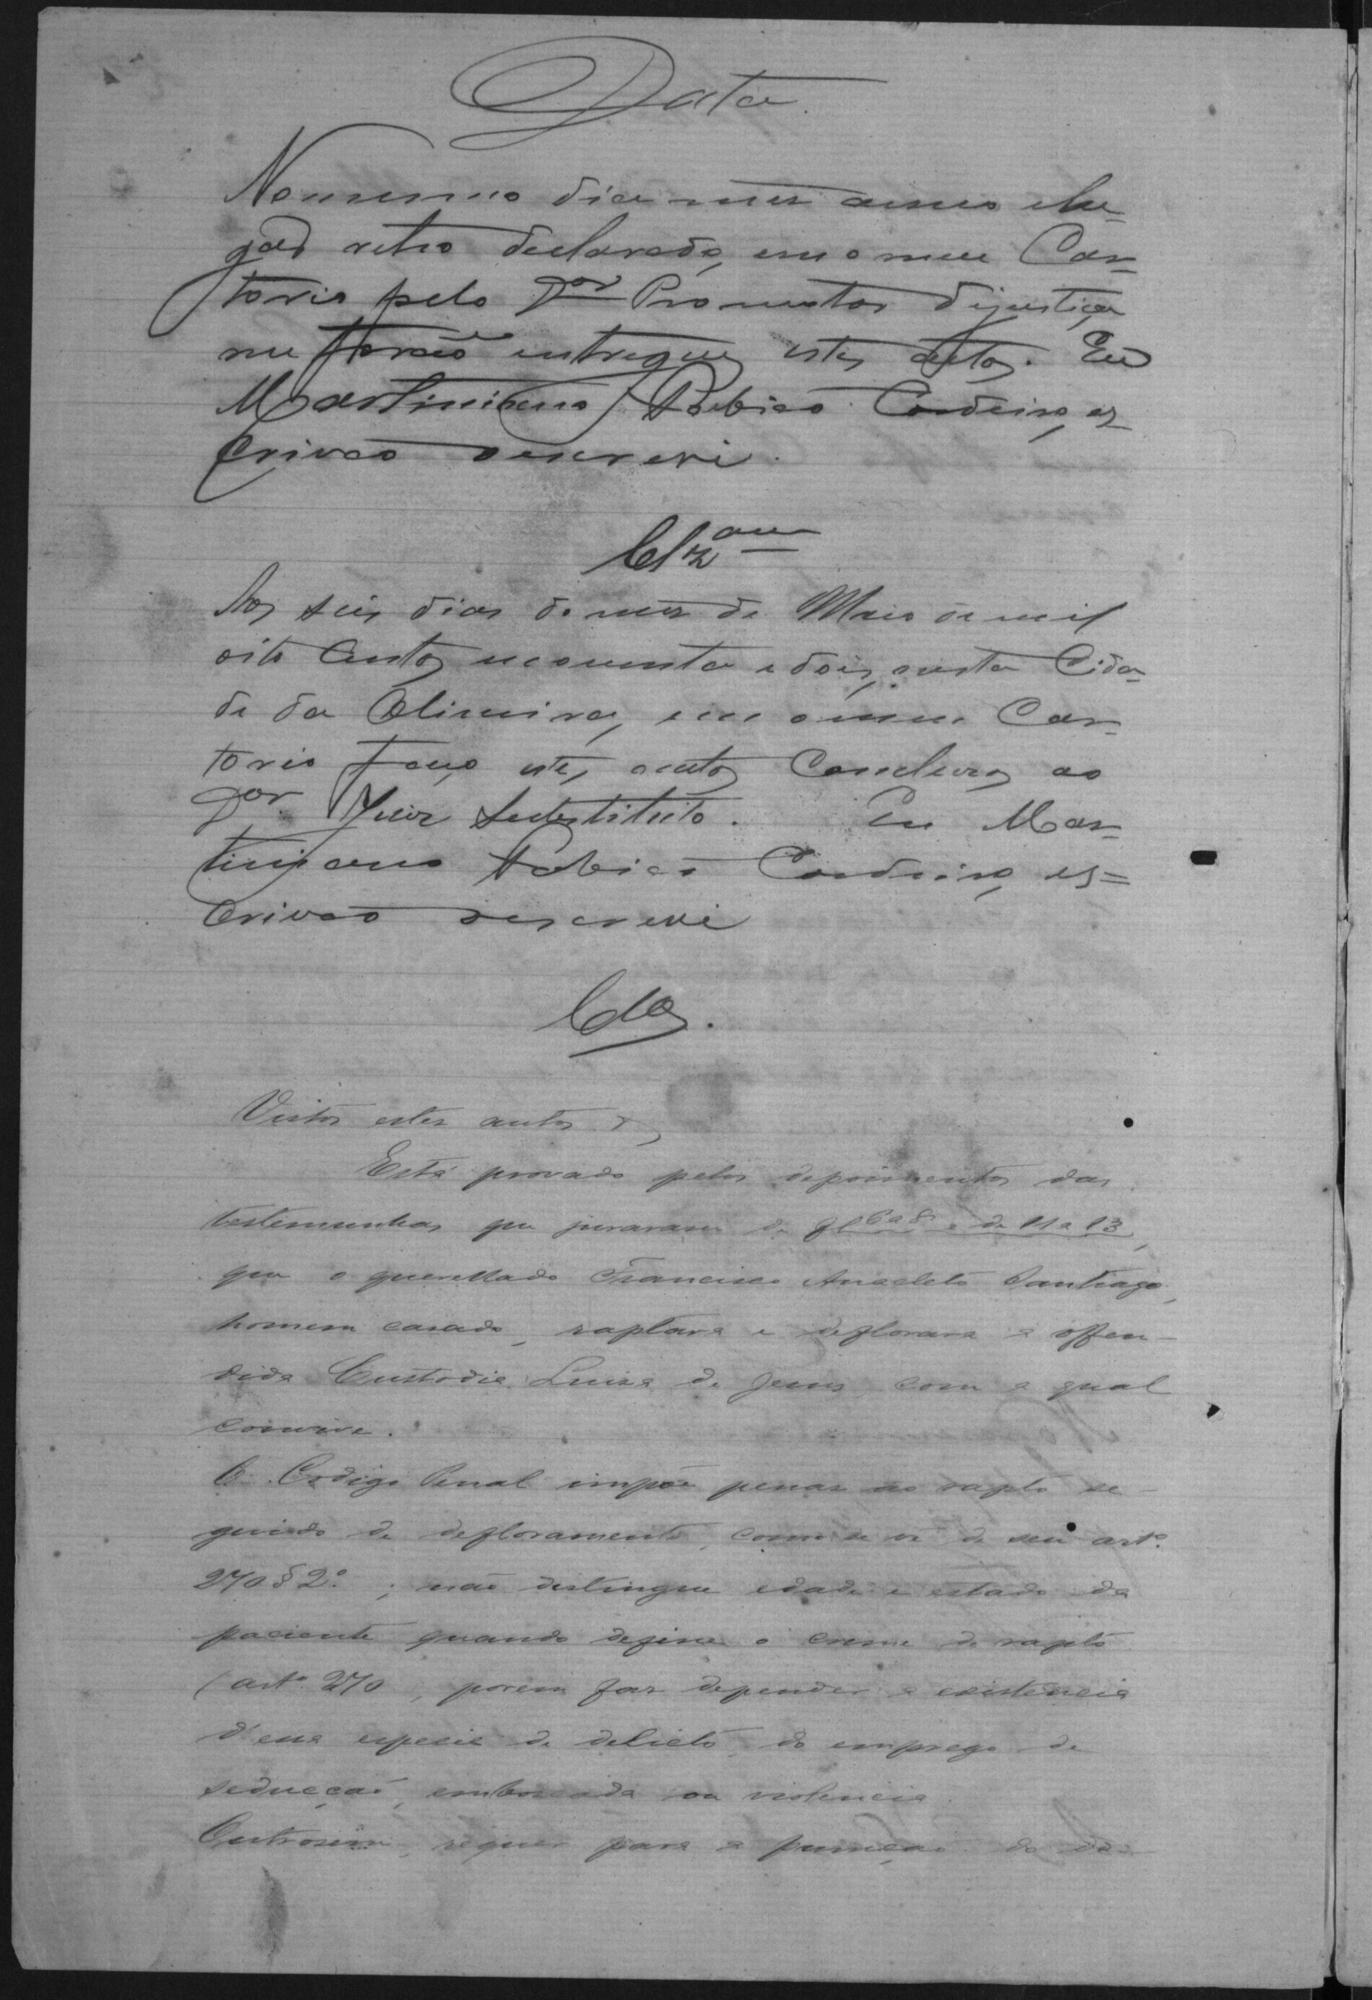 Data.
No mesmo dia mez anno e lu-
gar retro declarado, em o meu Car-
torio pelo Dor Promotor dejustiça
me forão entregues estes autos. Eu
Martiniano Cordeiro, es-
crivão o escrevi.
Clzam
Aos seis dias do mez de Maio de mil
oito centos noventa e dois, nesta Cida-
de da Limeira, em o meu Car-
torio faço estes autos Concluzos ao
Dor Juiz Substituto. Eu Mar-
tiniano Cordeiro, es=
crivão o escrevi
Clos.
Vistos estes autos &,
Está provado pelos depoimentos das
testemunhas que juraram de fls 6 a 8 e de 11 a 13,
que o querellado Francisco Anacleto Santiago,
homem casado, raptara e deflorara a offen-
dida Custodia Luiza de Jesus, com a qual
convive.
O Codigo Penal impõe penas ao rapto se-
guido de defloramento, como se vê de seu arto.
270 § 2o ; não distingue edade e estado da
paciente quando define o crime de rapto
(arto 270, porém faz depender a existencia
d'essa especie de delicto, do emprego de
seducção, emboscada ou violencia.
Outrosim, requer para a punição do de-